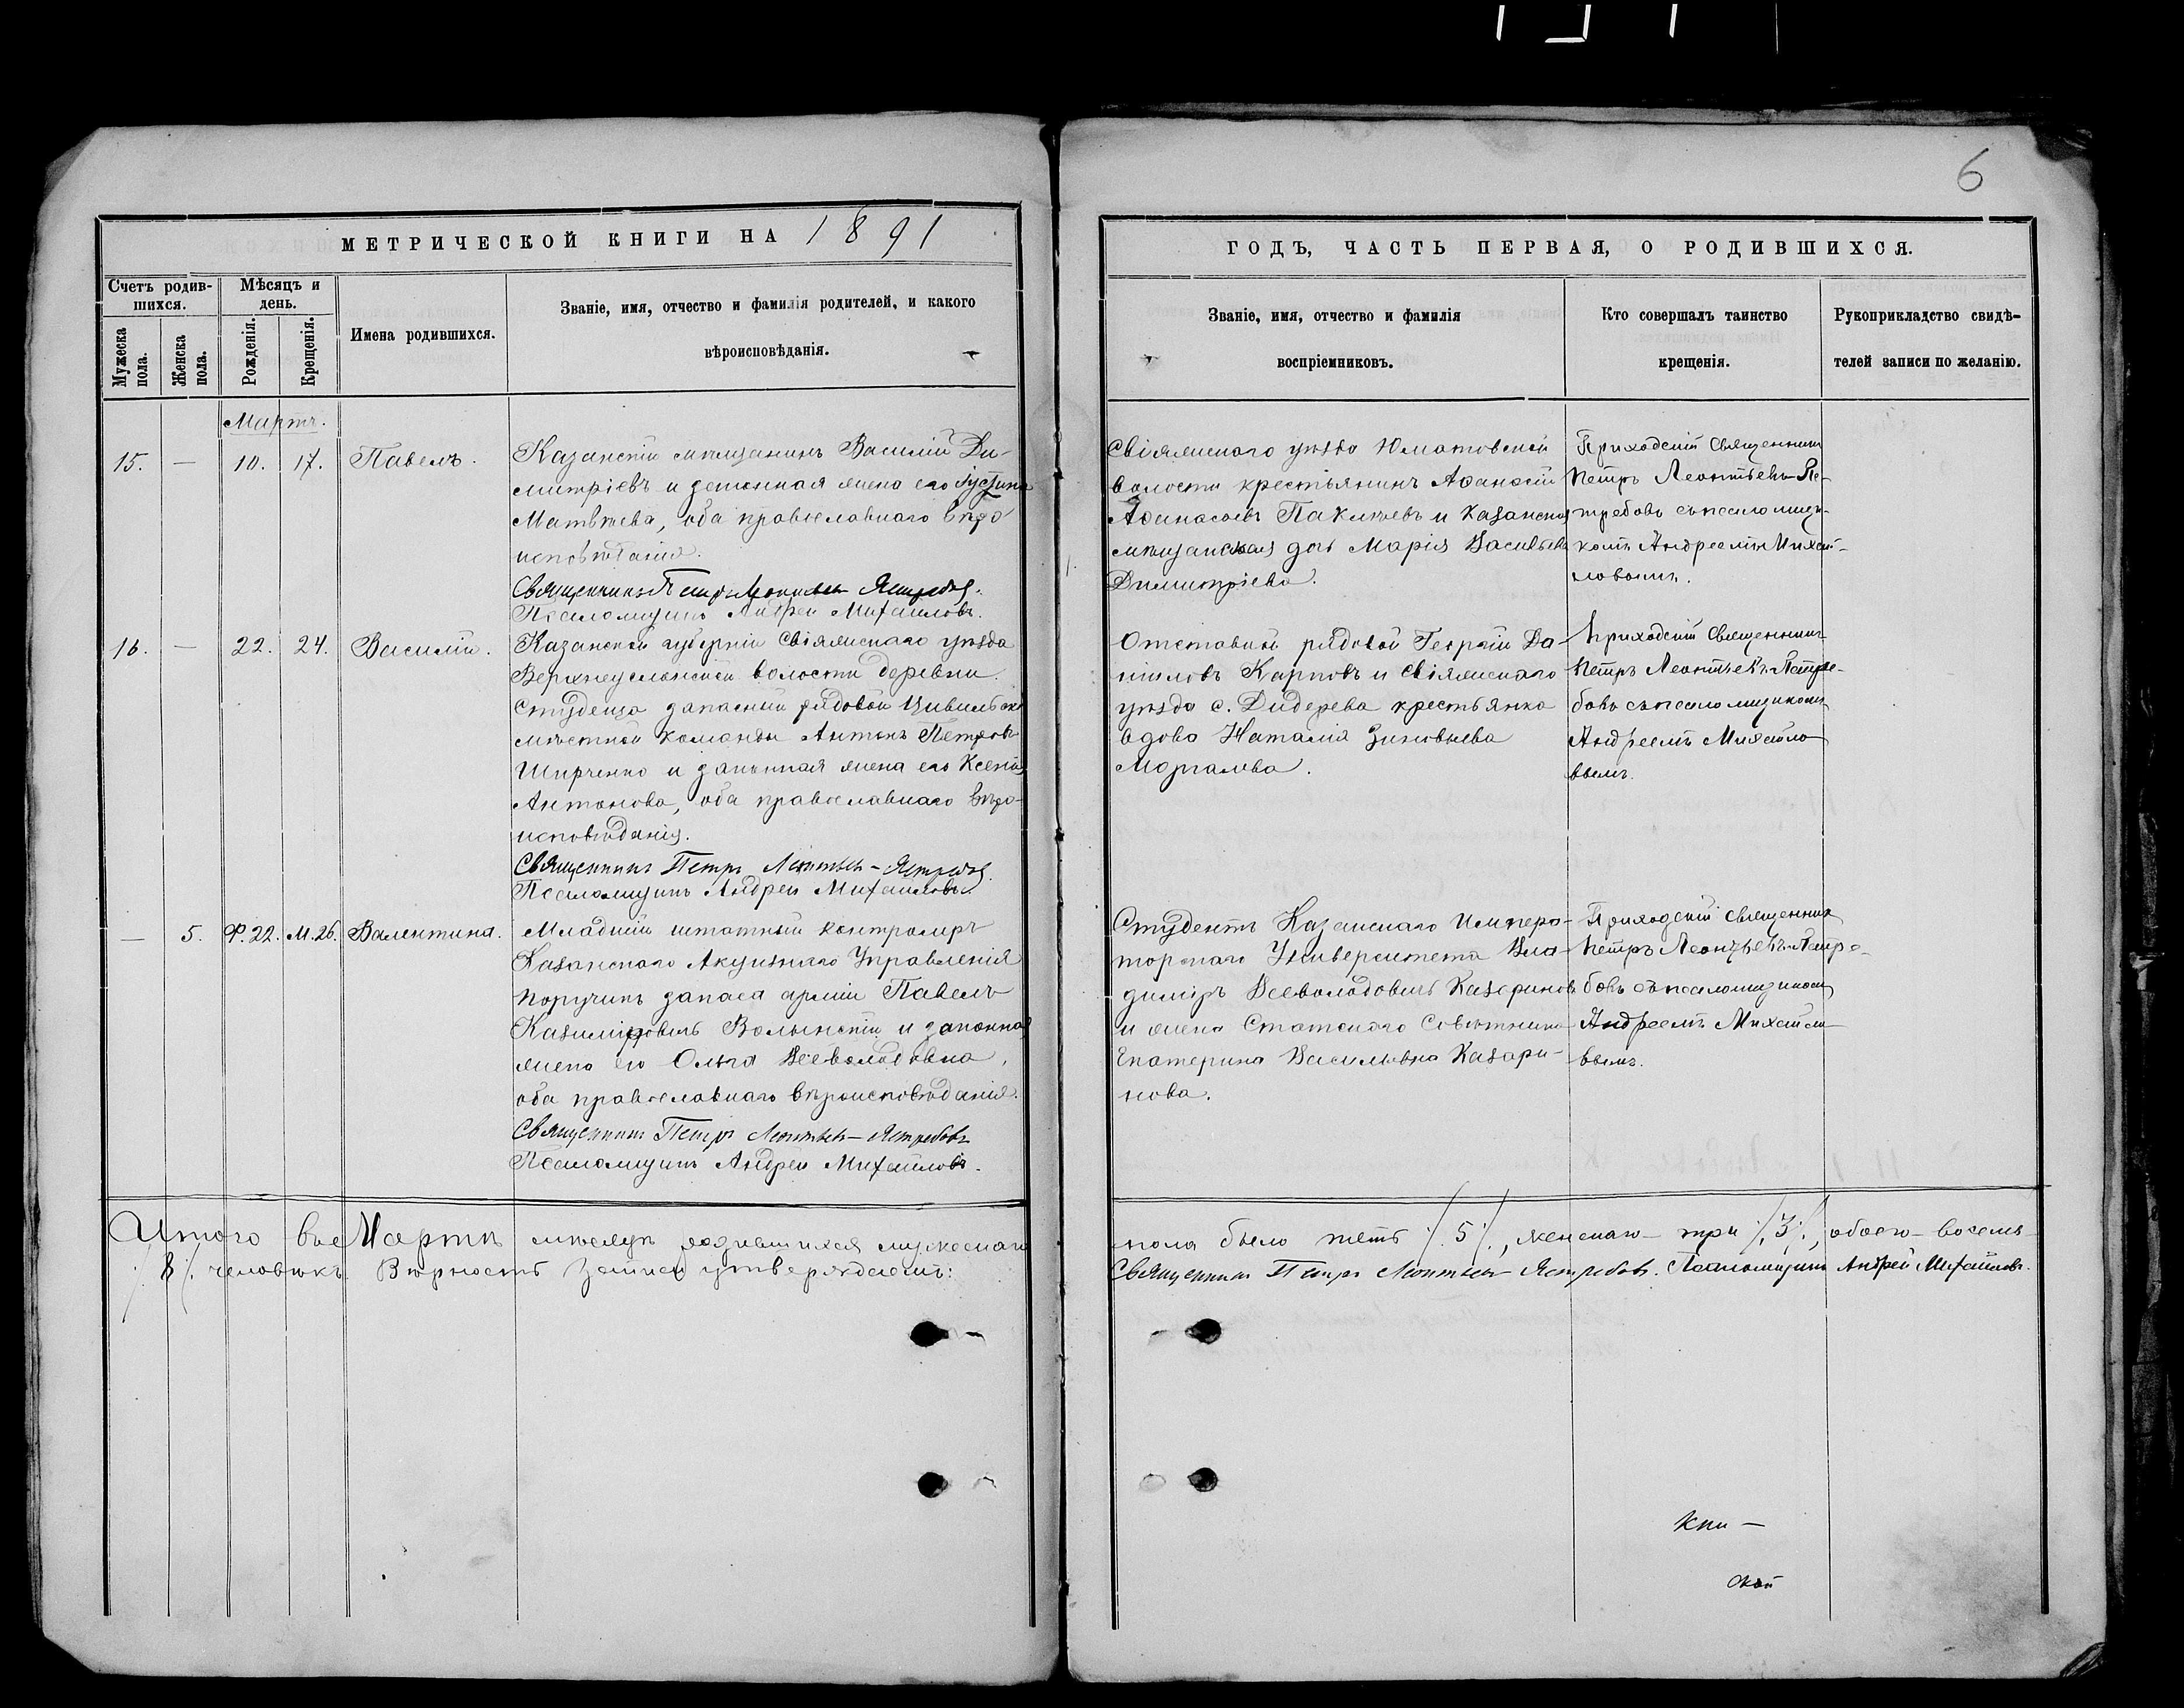 6
МЕТРИЧЕСКОЙ КНИГИ НА 1891
Счетъ родив-
шихся.
Мѣсяцъ и
день.
Мужеска
пола.
Женска
пола.
Рожденія.
Крещенія.
Имена родившихся.
Званіе, имя, отчество и фамилія родителей, и какого
вѣроисповѣданія.
Мартъ.
15. — 10. 17. Павелъ.
Казанскій мѣщанинъ Василій Ди-
митріевъ и законная жена его Іустина
Матвѣева, оба православнаго вѣро
исповѣданія.
Священникъ Петръ Леонтьевъ Ястребовъ.
Псаломщикъ Андрей Михайловъ.
16. — 22. 24. Василій.
Казанской губерніи Свіяжскаго уѣзда
Верхнеуслонской волости деревни
Студенца запасный рядовой Цивильской
мѣстной команды Антонъ Петровъ
и законная жена его Ксенія
Антонова, оба православнаго вѣро-
исповѣданія.
Священникъ Петръ Леонтьевъ-Ястребовъ.
Псаломщикъ Андрей Михайловъ.
— 5. Ф. 22. М. 26. Валентина.
Младшій штатный контролеръ
Казанскаго Акцизнаго Управленія
поручикъ запаса арміи Павелъ
Казиміровичъ Волынскій и законная
жена его Ольга Всеволодовна,
оба православнаго вѣроисповѣданія.
Священникъ Петръ Леонтьевъ-Ястребовъ
Псаломщикъ Андрей Михайловъ.
Итого въ Мартѣ мѣсяцѣ родившихся мужескаго
/ 8 /. человѣкъ. Вѣрность записи утверждаемъ:
ГОДЪ, ЧАСТЬ ПЕРВАЯ, О РОДИВШИХСЯ.
Званіе, имя, отчество и фамилія
воспріемниковъ.
Кто совершалъ таинство
крещенія.
Рукоприкладство свидѣ-
телей записи по желанію.
Свіяжскаго уѣзда Юматовской
волости крестьянинъ Аѳанасій
Аѳанасьевъ и Казанская
мѣщанская дочь Марія Васильева
Димитріева.
Приходскій Священникъ
Петръ Леонтьевъ-Яс-
требовъ съ псаломщи-
комъ Андреемъ Михай-
ловымъ.
Отставной рядовой Георгій Да-
ниловъ Карповъ и Свіяжскаго
уѣзда с. крестьянка
вдова Наталія Зиновьева
Моргалова.
Приходскій Священникъ
Петръ Леонтьевъ-Ястре-
бовъ съ псаломщикомъ
Андреемъ Михайло-
вымъ.
Студентъ Казанскаго Импера-
торскаго Университета Вла-
диміръ Всеволодовичъ Казариновъ
и жена Статскаго Совѣтника
Екатерина Васильевна Казари-
нова.
Приходскій Священникъ
Петръ Леонтьевъ-Ястре-
бовъ съ псаломщикомъ
Андреемъ Михайло-
вымъ.
пола было пять /. 5 /., женскаго- три /. 3 /., обоего- восемь
Священникъ Петръ Леонтьевъ Ястребовъ. Псаломщикъ Андрей Михайловъ.
кни —